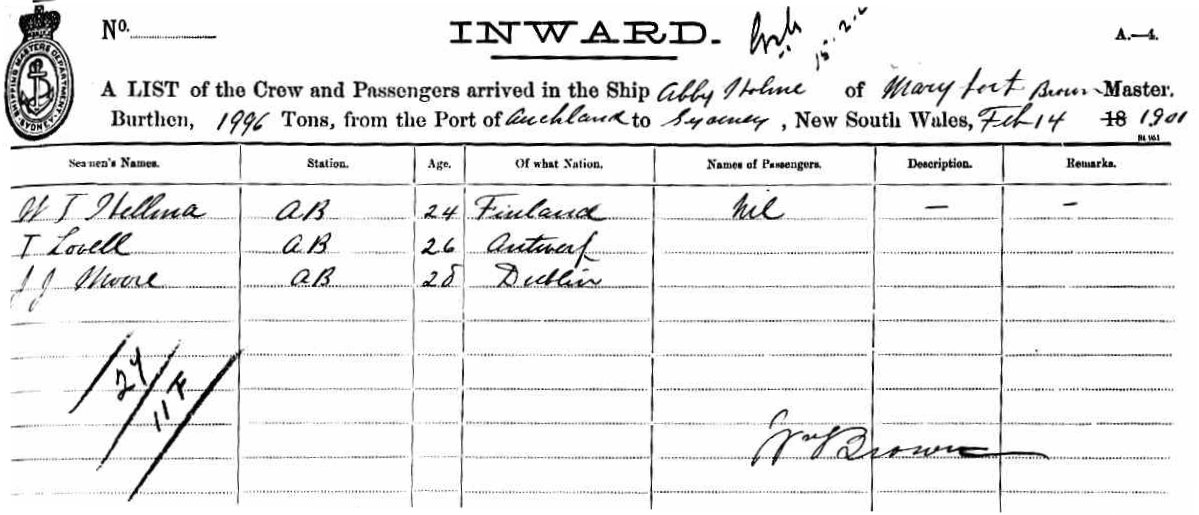 No. INWARD. 15.2. A.—4.
SHIPPING MASTERS DEPARTMENT SYDNEY
A LIST of the Crew and Passengers arrived in the Ship Abby Holme of Mary Port Brown Master,
Burthen, 1996 Tons, from the Port of Auckland to Sydney, New South Wales, Feb 14 18 1901
Seamen's Names. Station. Age. Of what Nation. Names of Passengers. Description. Remarks.
W T Hellma AB 24 Finland Nil — –
T Lovell AB 26 Antwerp
J J Moore AB 28 Dublin
24
11 F
Wm J Brown